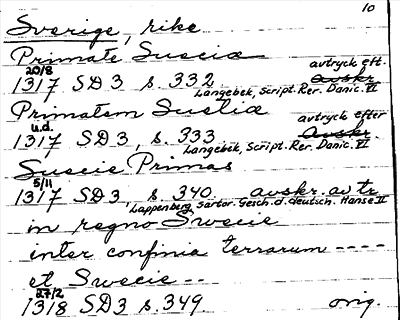 10
Sverige, rike
Primate Sueciæ
20/8 avtryck eft.
1317 SD 3 s. 332 avskr.
Langebek, Script. Rer. Danic. VI
Primatem Suetiæ
u.d. avtryck efter
1317 SD 3, s. 333 Avskr.
Langebek, Script. Rer. Danic. VI
Suecie Primas
5/11
1317 SD 3, s. 340. avskr. av tr.
Lappenberg, Sartor. Gesch. d. deutsch. Hanse II
in regno Swecie
inter confinia terrarum ----
et Swecie
27/2
1318 SD 3 s. 349. orig.